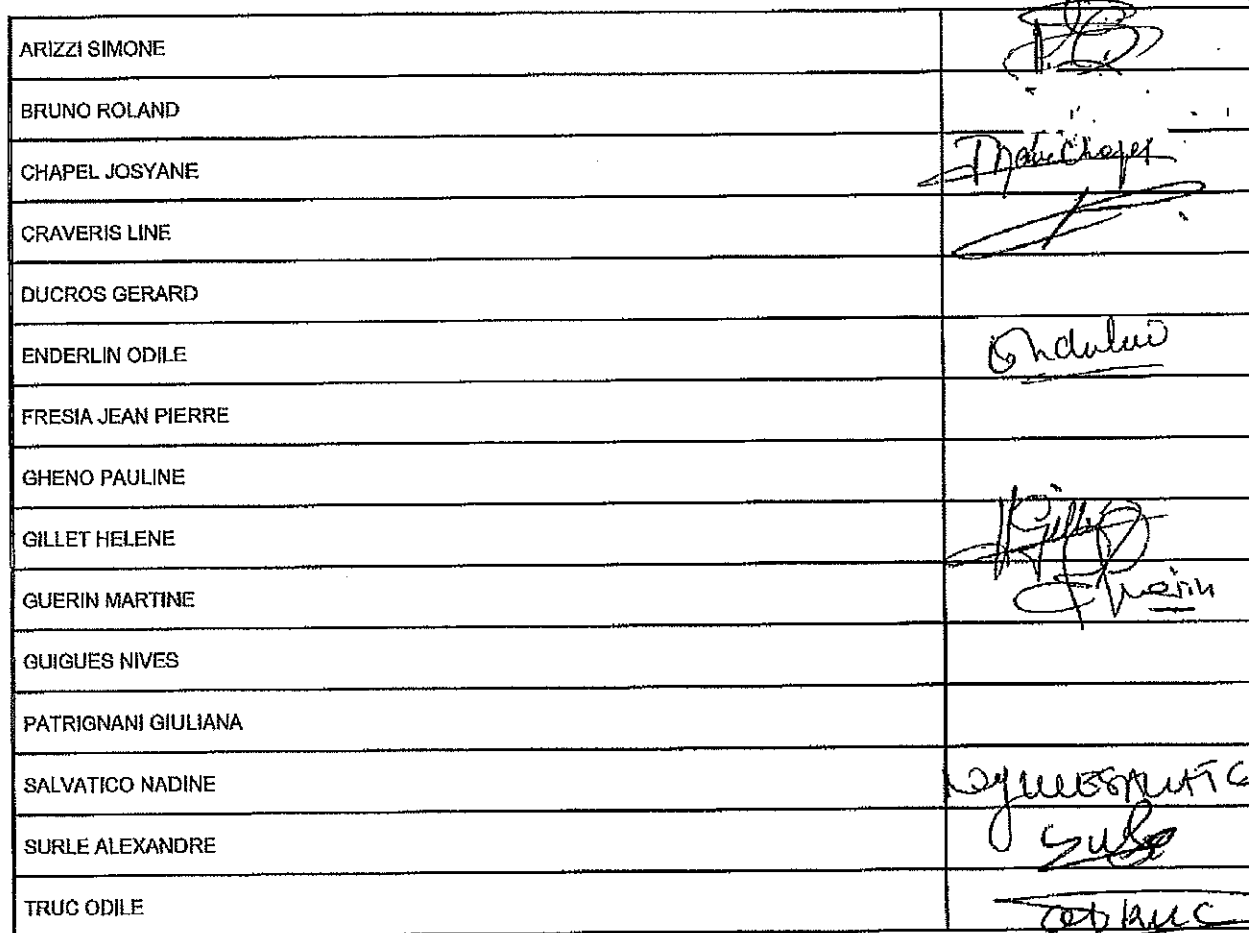 ARIZZI SIMONE
BRUNO ROLAND
CHAPEL JOSYANE
CRAVERIS LINE
DUCROS GERARD
ENDERLIN ODILE
FRESIA JEAN PIERRE
GHENO PAULINE
GILLET HELENE
GUERIN MARTINE Guerin
GUIGUES NIVES
PATRIGNANI GIULIANA
SALVATICO NADINE
SURLE ALEXANDRE
TRUC ODILE